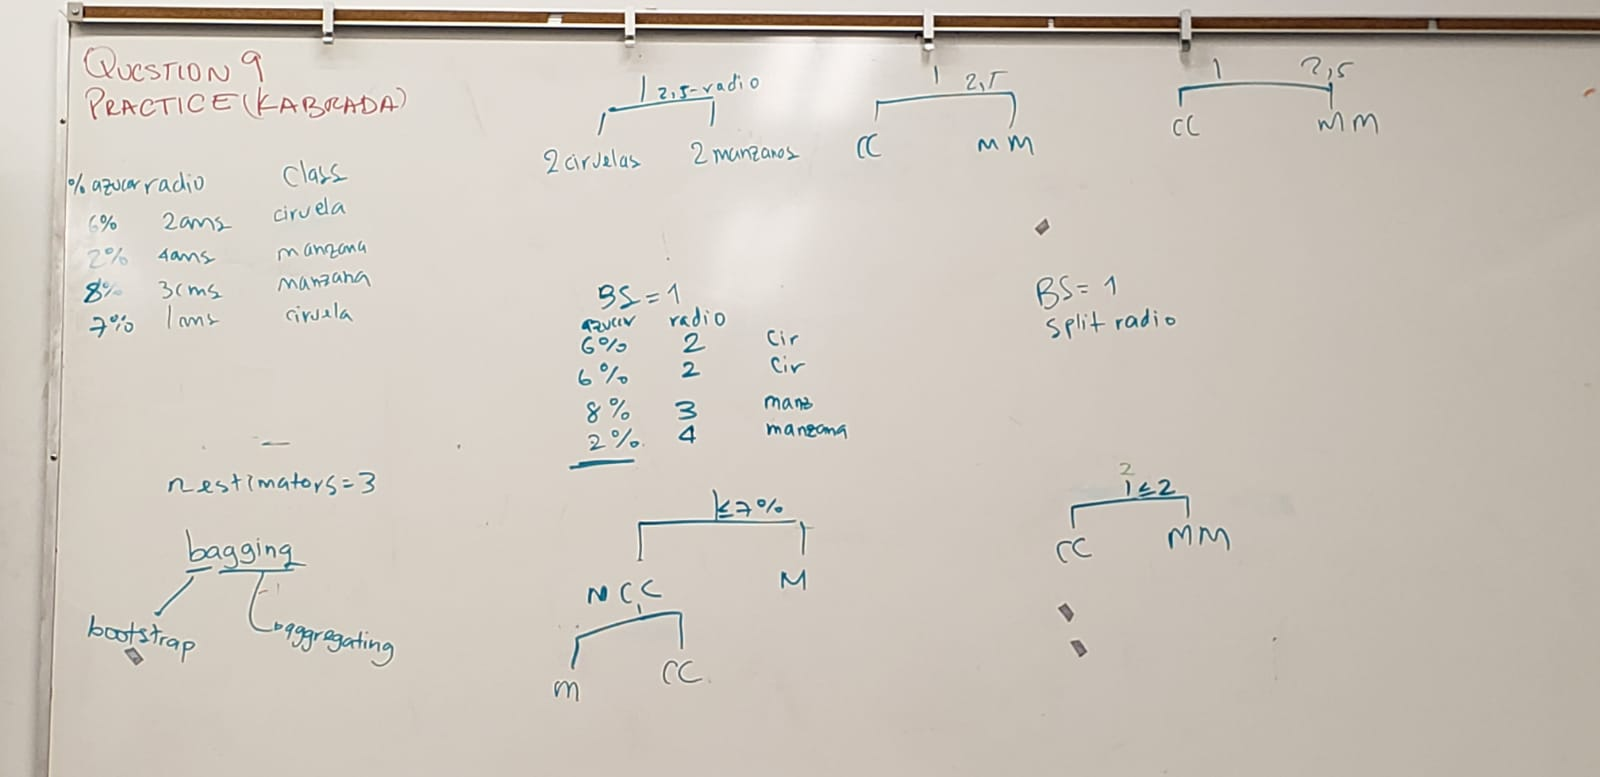 QUESTION 9
PRACTICE (KABRADA)
% azucar radio Class
6% 2cms ciruela
2% 4cms manzana
8% 3cms manzana
7% 1cms ciruela
n estimators=3
bagging
bootstrap
aggregating
2,5-radio
2 ciruelas 2 manzanas
BS=1
azucar radio
6% 2 Cir
6% 2 Cir
8% 3 manz
2% 4 manzana
≤7%
M C C M
m CC
2,5
CC MM
2,5
CC MM
BS=1
split radio
2
≤2
CC MM